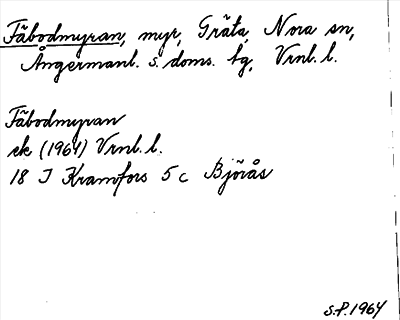 Fäbodmyran, myr, Gräta, Nora sn,
Ångermanl. s. doms. tg, Vrnl. l.
Fäbodmyran
ek (1964) Vrnl. l.
18 I Kramfors 5 c Björås
S.P. 1964